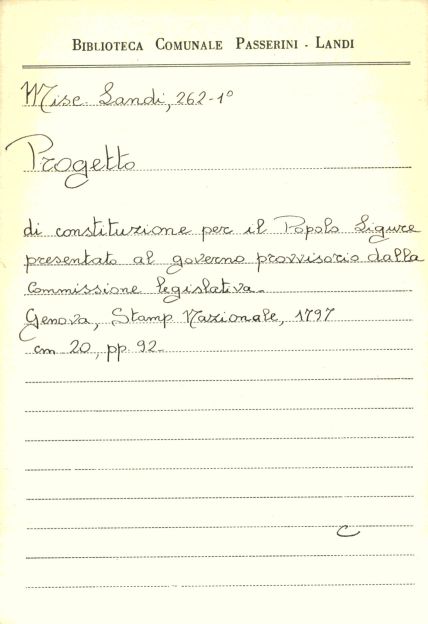 BIBLIOTECA COMUNALE PASSERINI - LANDI
Misc. Landi, 262-1°
Progetto
di constituzione per il Popolo Ligure
presentato al governo provvisorio dalla
Commissione legislativa.
Genova, Stamp. Nazionale, 1797
cm 20, pp. 92.
C